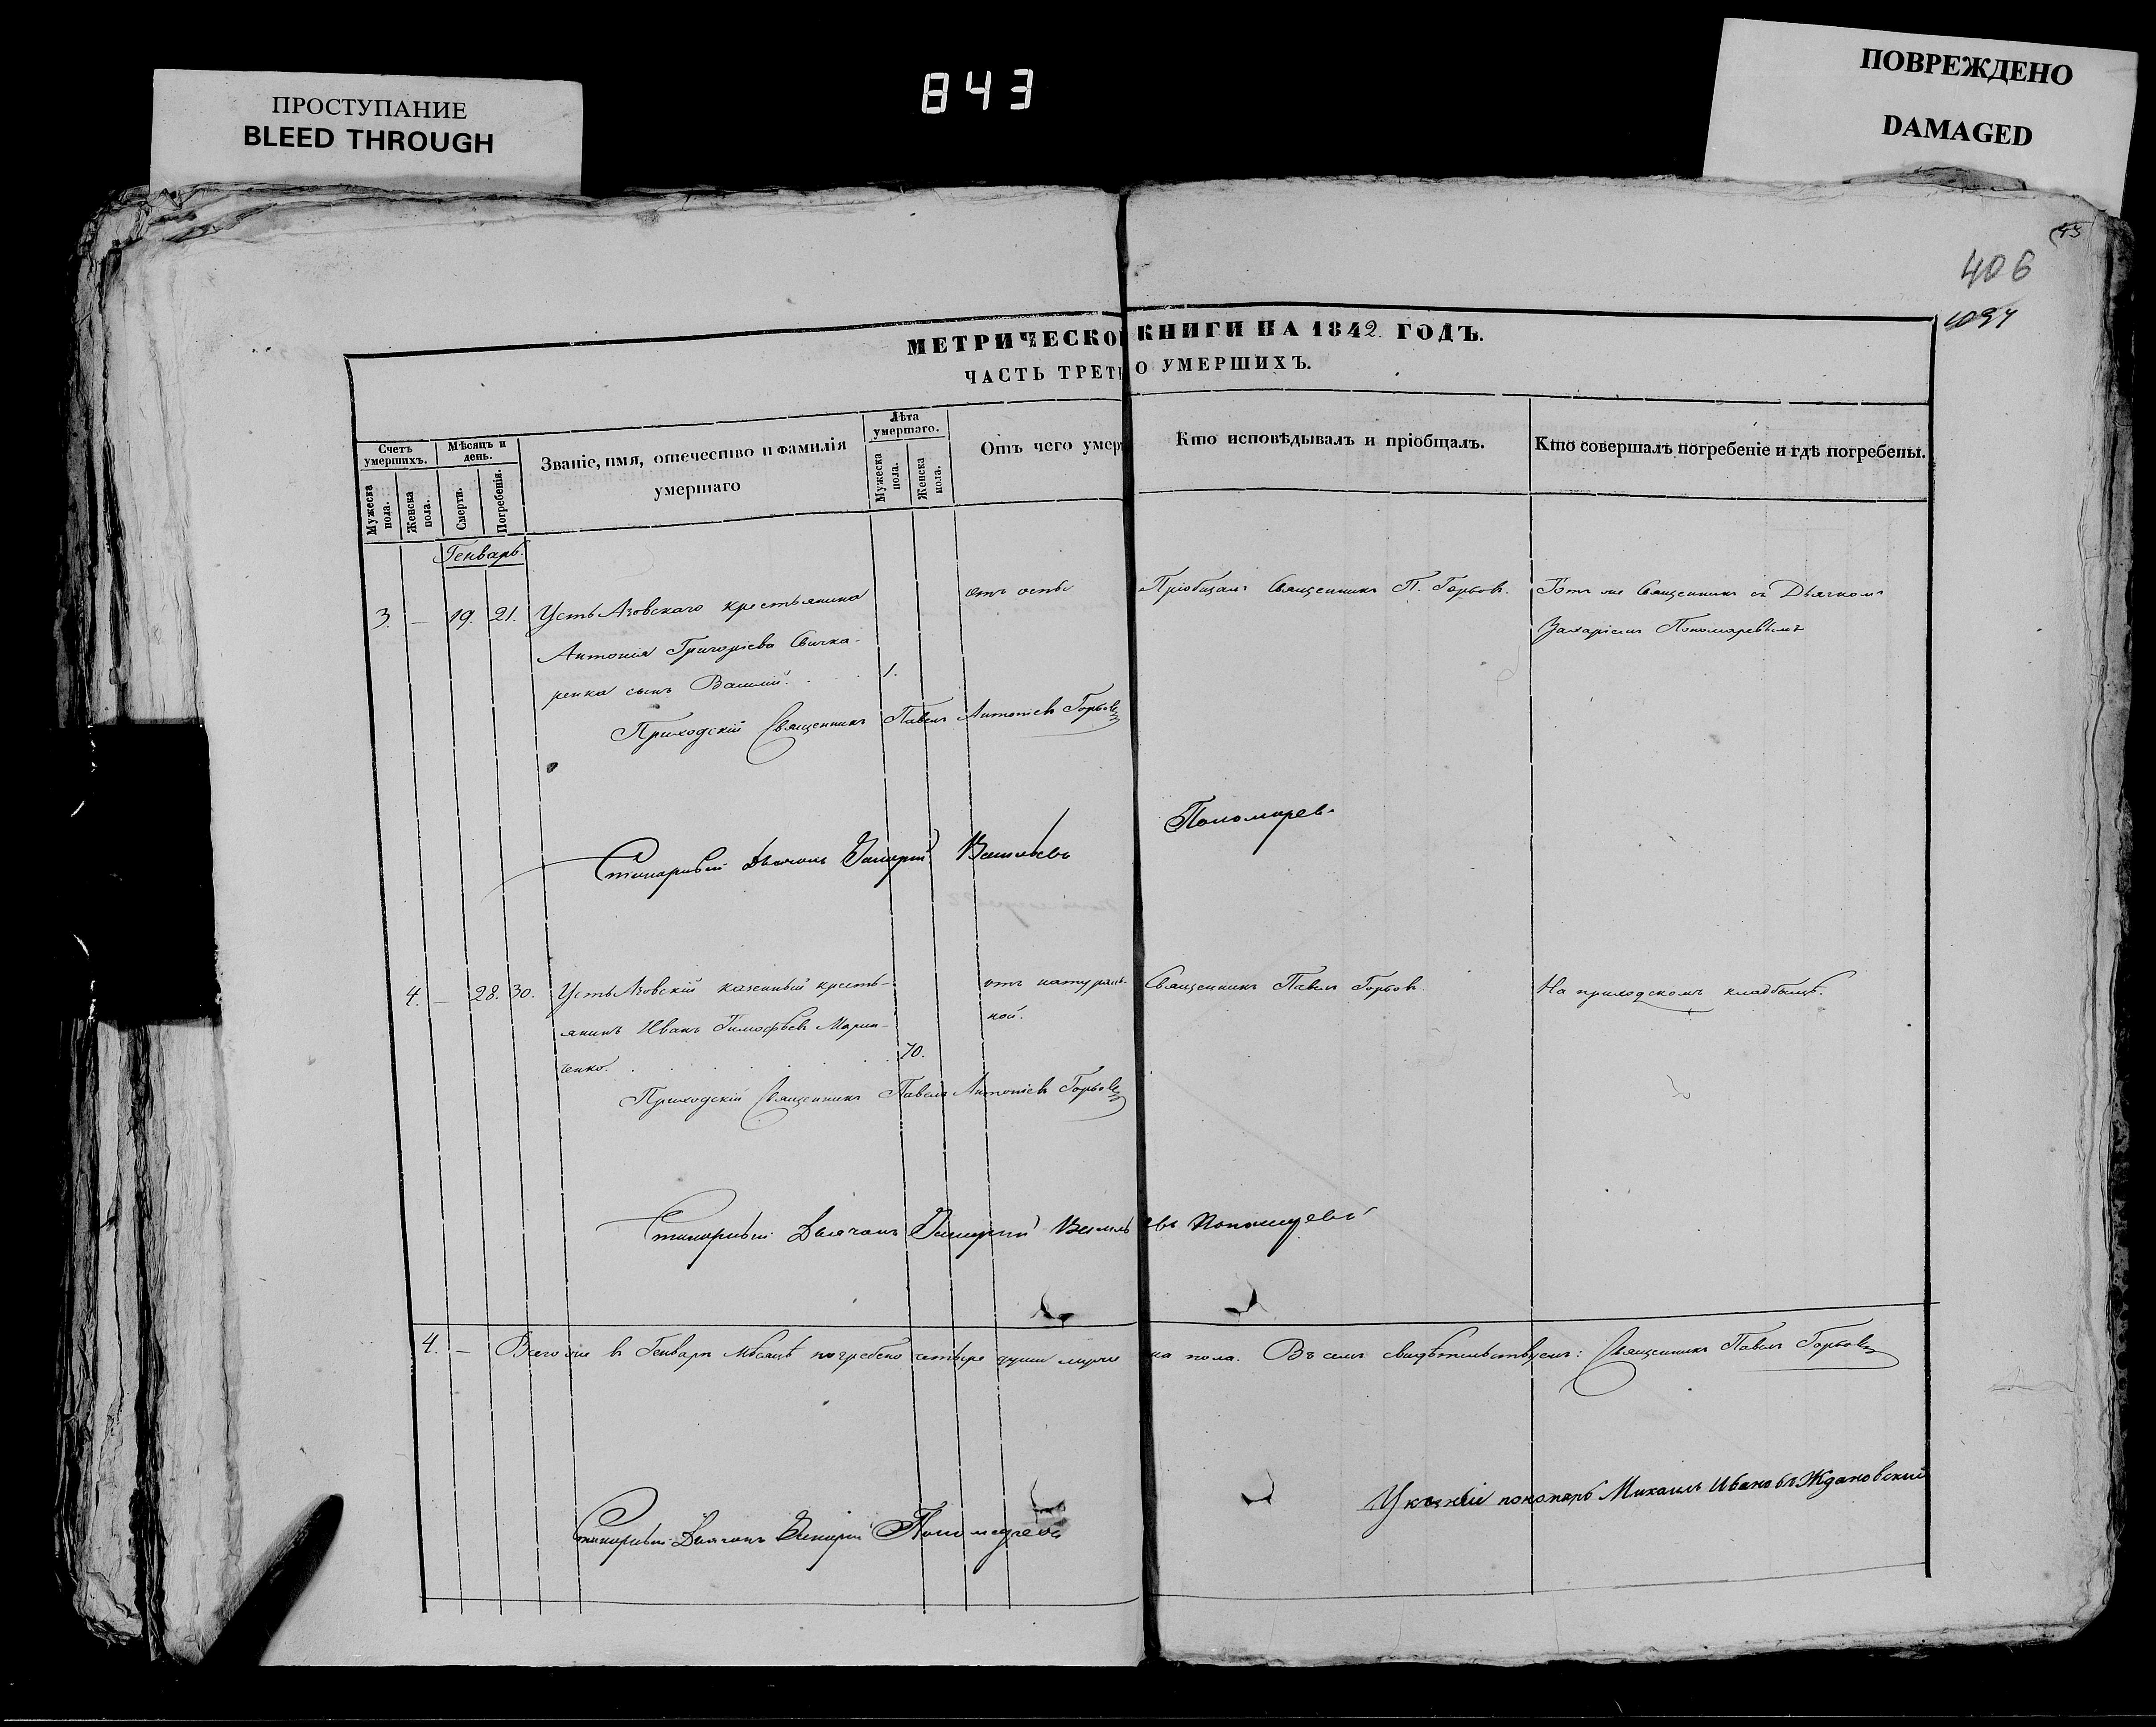 ПРОСТУПАНИЕ
BLEED THROUGH
843
ПОВРЕЖДЕНО
DAMAGED
406
МЕТРИЧЕСКО КНИГИ НА 1842 ГОДЪ.
ЧАСТЬ ТРЕТЬ О УМЕРШИХЪ.
Счетъ умершихъ.
Мужеска пола.
Женска пола.
Мѣсяцъ и день.
Смерти.
Погребенія.
Званіе, имя, отечество и фамилія
умершаго
Лѣта умершаго.
Мужеска пола.
Женска пола.
Отъ чего умер
Кто исповѣдывалъ и пріобщалъ.
Кто совершалъ погребеніе и гдѣ погребены.
Генварь.
3. — 19. 21. Усть Азовскаго крестьянина
Антонія Григоріева Свичка-
ренка сынъ Василій. 1.
отъ оспы
Пріобщалъ Священникъ П. Горбов.
Тотъ же Священникъ съ Дьячкомъ
Захаріемъ Пономаревымъ
Приходскій Священникъ Павелъ Антоніевъ Горбовъ
Стихарный Дьячокъ Захарій Васильевъ Пономарев
4. — 28. 30. Усть Азовскій казенный кресть-
янинъ Иванъ Тимофѣевъ Марин-
ченко. 70.
отъ натураль-
ной.
Священникъ Павелъ Горбов
На приходскомъ кладбищѣ.
Приходскій Священникъ Павелъ Антоніевъ Горбовъ
Стихарный Дьячокъ Захарій Васильевъ Пономаревъ
4. — Всего же въ Генварѣ мѣсяцѣ погребено четыре души муже ка пола. Въ семъ свидѣтельствуемъ: Священникъ Павелъ Горбовъ
Стихарный Дьячокъ Захарій Пономаревъ
Указный пономарь Михаилъ Ивановъ Ждановский